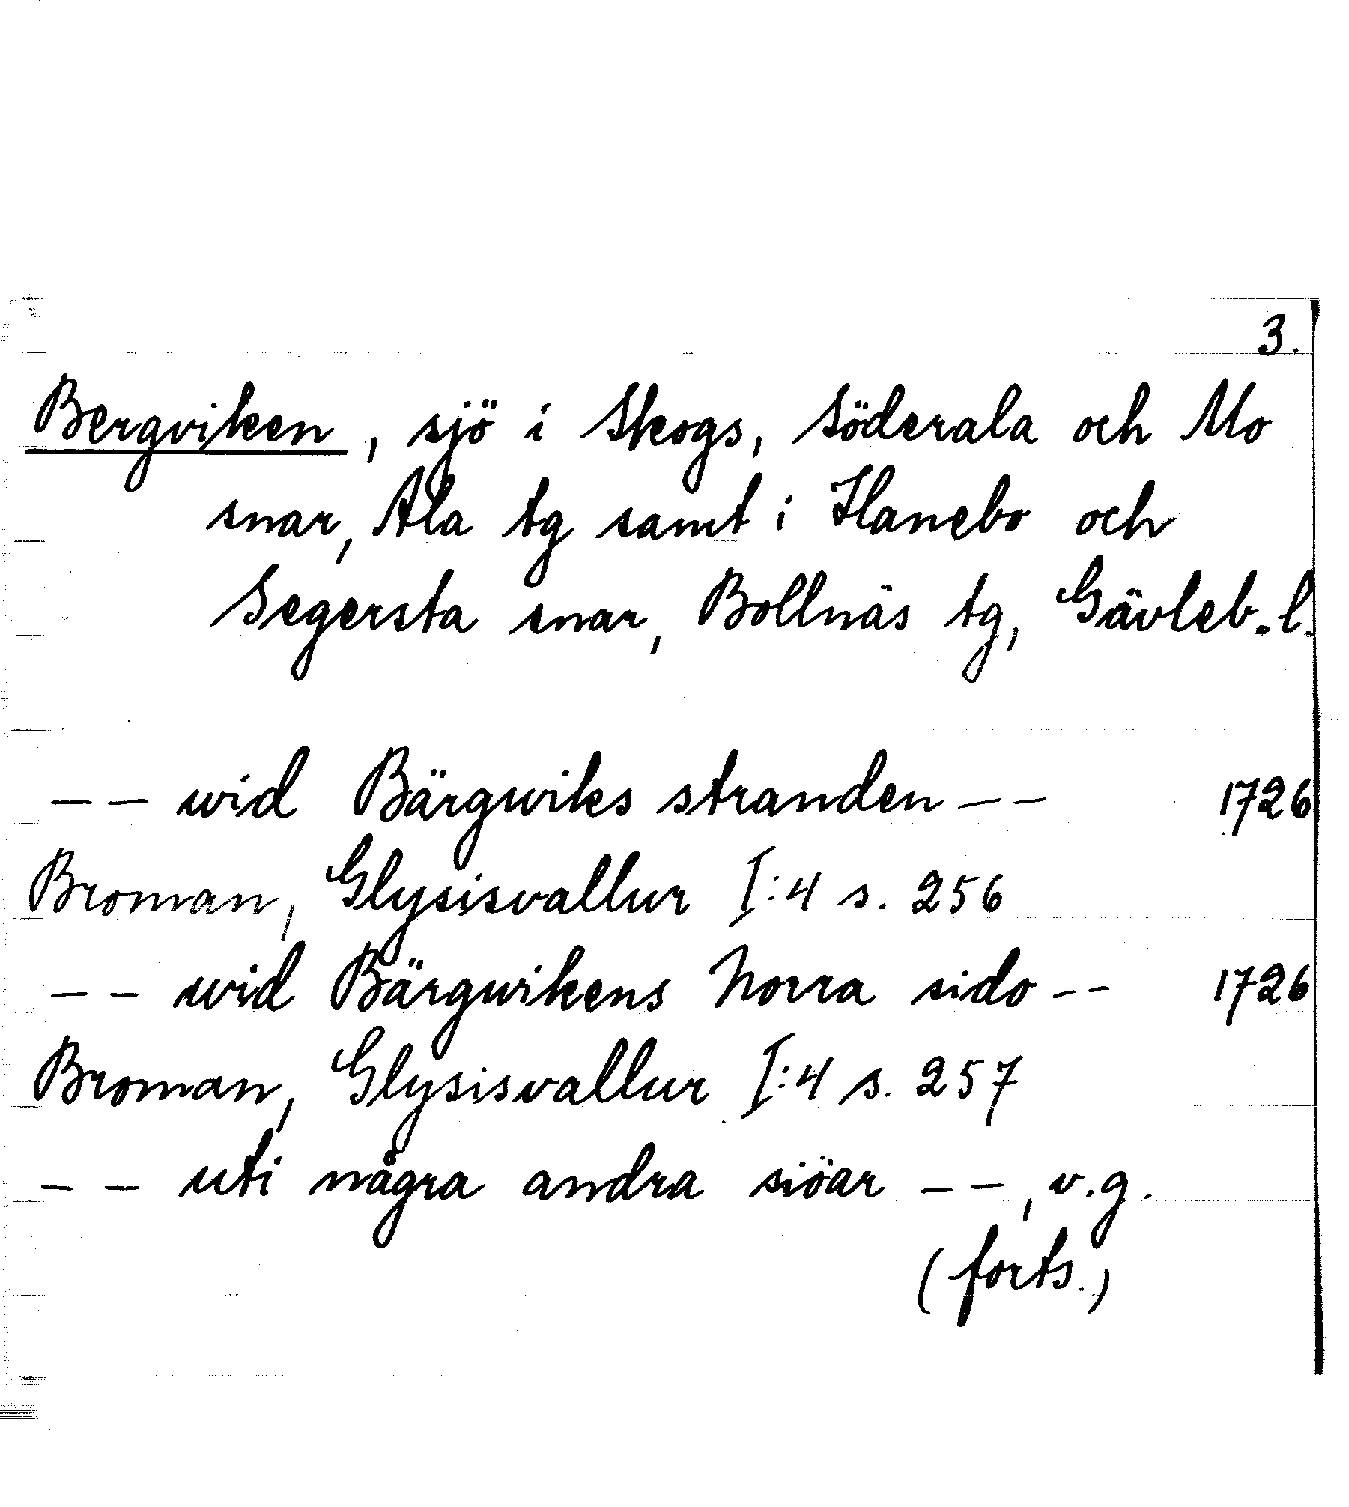 3.
Bergviken, sjö i Skogs, Söderala och Mo
snar, Ala tg samt i Hanebo och
Segersta snar, Bollnäs tg, Gävleb.l.
-- wid Bärgwiks stranden -- 1726
Broman, Glysisvallur I:4 s. 256
-- wid Bärgwikens Norra sido -- 1726
Broman, Glysisvallur I:4 s. 257
-- uti några andra siöar --, v.g.
(forts.)